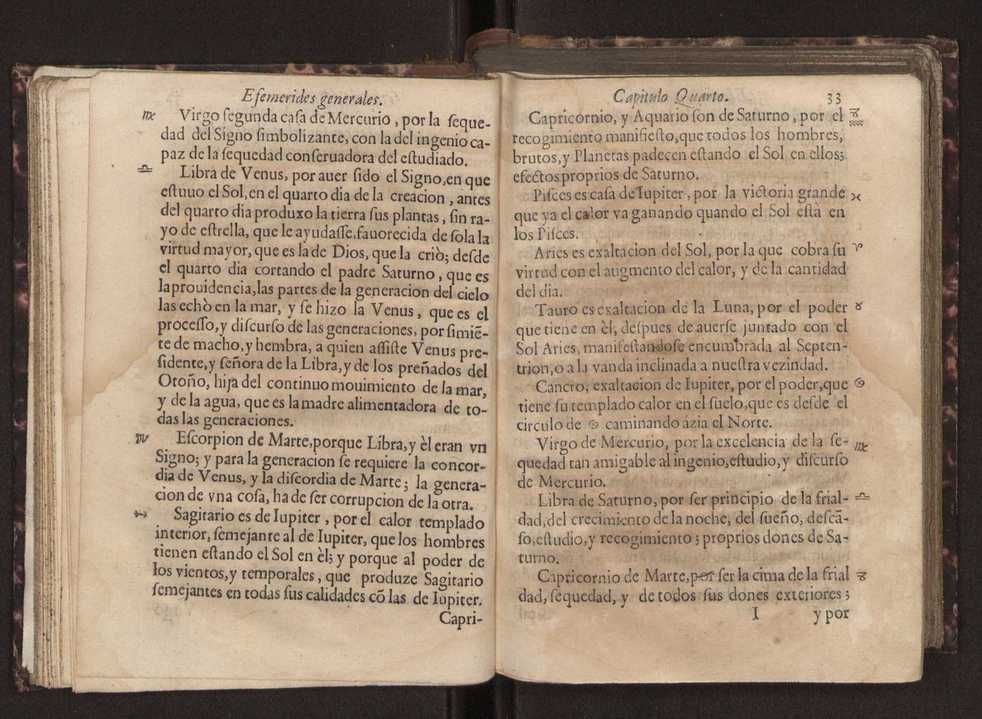 Efemerides generales.
♍ Virgo ſegunda caſa de Mercurio, por la ſeque-
dad del Signo ſimbolizante, con la del ingenio ca-
paz de la ſequedad conſeruadora del eſtudiado.
♎ Libra de Venus, por auer ſido el Signo, en que
eſtuuo el Sol, en el quarto dia de la creacion, antes
del quarto dia produxo la tierra ſus plantas, ſin ra-
yo de eſtrella, que le ayudaſſe, fauorecida de ſola la
virtud mayor, que es la de Dios, que la criò; deſde
el quarto dia cortando el padre Saturno, que es
la prouidencia, las partes de la generacion del cielo
las echò en la mar, y ſe hizo la Venus, que es el
proceſſo, y diſcurſo de las generaciones, por ſimiẽ-
te de macho, y hembra, a quien aſſiſte Venus pre-
ſidente, y ſeñora de la Libra, y de los preñados del
Otoño, hija del continuo mouimiento de la mar,
y de la agua, que es la madre alimentadora de to-
das las generaciones.
♏ Eſcorpion de Marte, porque Libra, y èl eran vn
Signo; y para la generacion ſe requiere la concor-
dia de Venus, y la diſcordia de Marte; la genera-
cion de vna coſa, ha de ſer corrupcion de la otra.
♐ Sagitario es de Iupiter, por el calor templado
interior, ſemejante al de Iupiter, que los hombres
tienen eſtando el Sol en èl; y porque al poder de
los vientos, y temporales, que produze Sagitario
ſemejantes en todas ſus calidades cõ las de Iupiter.
Capri-
Capitulo Quarto. 33
Capricornio, y Aquario ſon de Saturno, por el ♑ ♒
recogimiento manifieſto, que todos los hombres,
brutos, y Planetas padecen eſtando el Sol en ellos;
efectos proprios de Saturno.
Piſces es caſa de Iupiter, por la victoria grande ♓
que ya el calor va ganando quando el Sol eſtà en
los Piſces.
Aries es exaltacion del Sol, por la que cobra ſu ♈
virtud con el augmento del calor, y de la cantidad
del dia.
Tauro es exaltacion de la Luna, por el poder ♉
que tiene en èl, deſpues de auerſe juntado con el
Sol Aries, manifeſtandoſe encumbrada al Septen-
trion, o a la vanda inclinada a nueſtra vezindad.
Cancro, exaltacion de Iupiter, por el poder, que ♋
tiene ſu templado calor en el ſuelo, que es deſde el
circulo de ♋ caminando àzia el Norte.
Virgo de Mercurio, por la excelencia de la ſe- ♍
quedad tan amigable al ingenio, eſtudio, y diſcurſo
de Mercurio.
Libra de Saturno, por ſer principio de la frial- ♎
dad, del crecimiento de la noche, del ſueño, deſcã-
ſo, eſtudio, y recogimiento; proprios dones de Sa-
turno.
Capricornio de Marte, por ſer la cima de la frial ♑
dad, ſequedad, y de todos ſus dones exteriores;
I y por